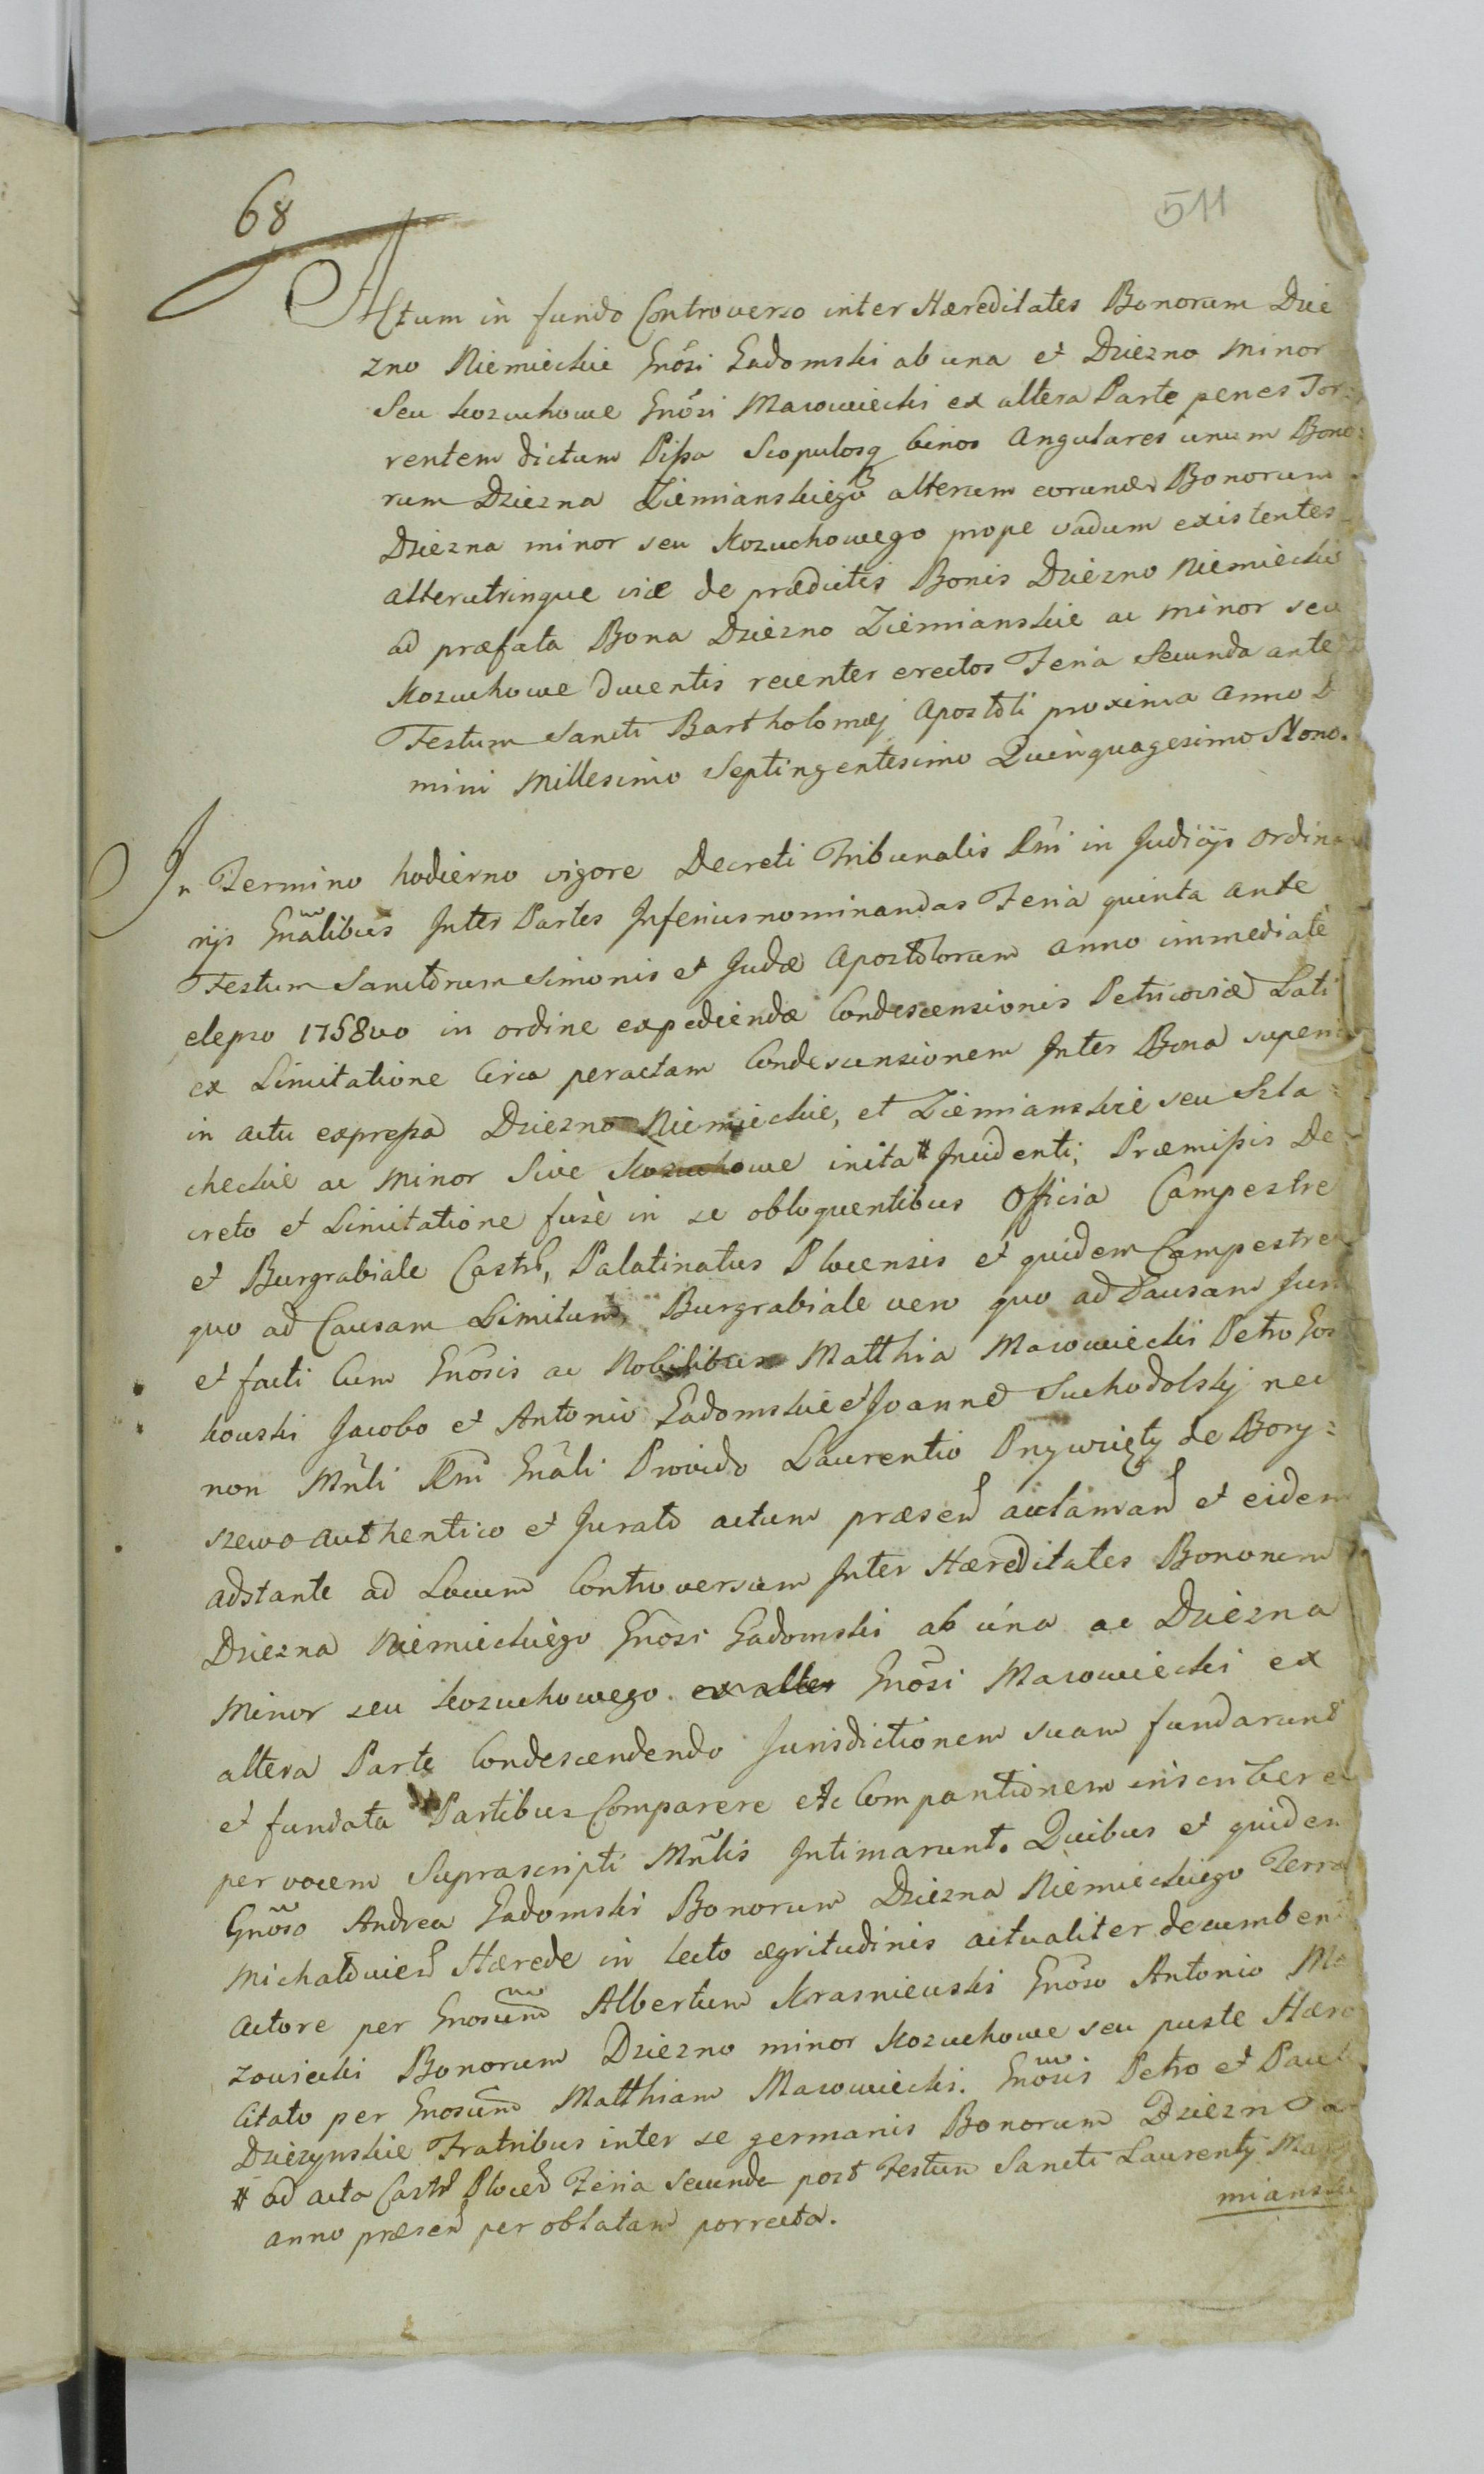 68
511
Actum in fundo Controverso inter Hæreditates Bonorum Dzie
zno Niemieckie Gnosi Gadomski ab una et Dziezno Minor
Seu kozuchowe Gnosi Mazowiecki ex altera Parte penes Tor=
rentem dictum Pissa Scopulosq binos Angulares unum Bono=
rum Dziezna Ziemianskiego alterum eorunde Bonorum
Dziezna minor seu Kozuchowego prope vadum existentes
alterutrinque viæ de prædictis Bonis Dziezno Niemieckie
ad præfata Bona Dziezno Ziemianskie ac minor seu
Kozuchowe ducentis recenter erectos Feria Secunda ante
Festum Sancti Bartholomæj Apostoli proxima Anno D
mini Millesimo Septingentesimo Quinquagesimo Nono.
In Termino hodierno vigore Decreti Tribunalis Rni in Judicijs ordina
rijs Gnalibus Inter Partes Inferius nominandas Feria quinta ante
Festum Sanctorum Simonis et Judæ Apostolorum anno immediate
elepso 1758vo in ordine expediendæ Condescensionis Petricoviæ Lati
ex Limitatione Circa peractam Condescensionem Inter Bona superi
in actu expressa Dziezno Niemieckie, et Ziemianskie seu Szla=
checkie ac Minor Sive Kozuchowe inita # Incidenti, Præmissis De=
creto et Limitatione fusè in se obloquentibus Officia Campestre
et Burgrabiale Castr, Palatinatus Plocensis et quidem Campestre
quo ad Causam Limitum, Burgrabiale vero quo ad Causam Juris
et facti Cum Gnosis ac Nobilibus Matthia Mazowiecki Petro Gos
kowski Jacobo et Antonio Gadomskie et Joanne Suchodolskj nec
non Mnli Rni Gnali Provido Laurentio Przywizty de Bory=
szewo authentico et Jurato actum præsen acclaman et eidem
adstante ad Locum Controversum Inter Hæreditates Bonorum
Dziezna Niemieckiego Gnosi Gadomski ab una ac Dziezna
Minor seu kozuchowego ex alter Gnosi Mazowiecki ex
altera Parte Condescendendo Jurisdictionem suam fundarunt
et fundata Partibus Comparere et Comparitionem inscribere
per vocem Suprascripti Mnlis Intimarunt. Quibus et quidem
Gnoso Andrea Gadomski Bonorum Dziezna Niemieckiego Terra
Michalovien Hærede in lecto ægritudinis actualiter decumben
Actore per Gnosum Albertum Krasniewski Gnoso Antonio Ma
zowiecki Bonorum Dziezno minor Kozuchowe seu puste Hære
Citato per Gnosum Matthiam Mazowiecki. Gnosis Petro et Paulo
Dziezynskie Fratribus inter se germanis Bonorum Dziezno
# ad acta Castr Plocen Feria Secunda post Festum Sancti Laurentij Mar
anno præsen per oblatam porrecta.
mianskie